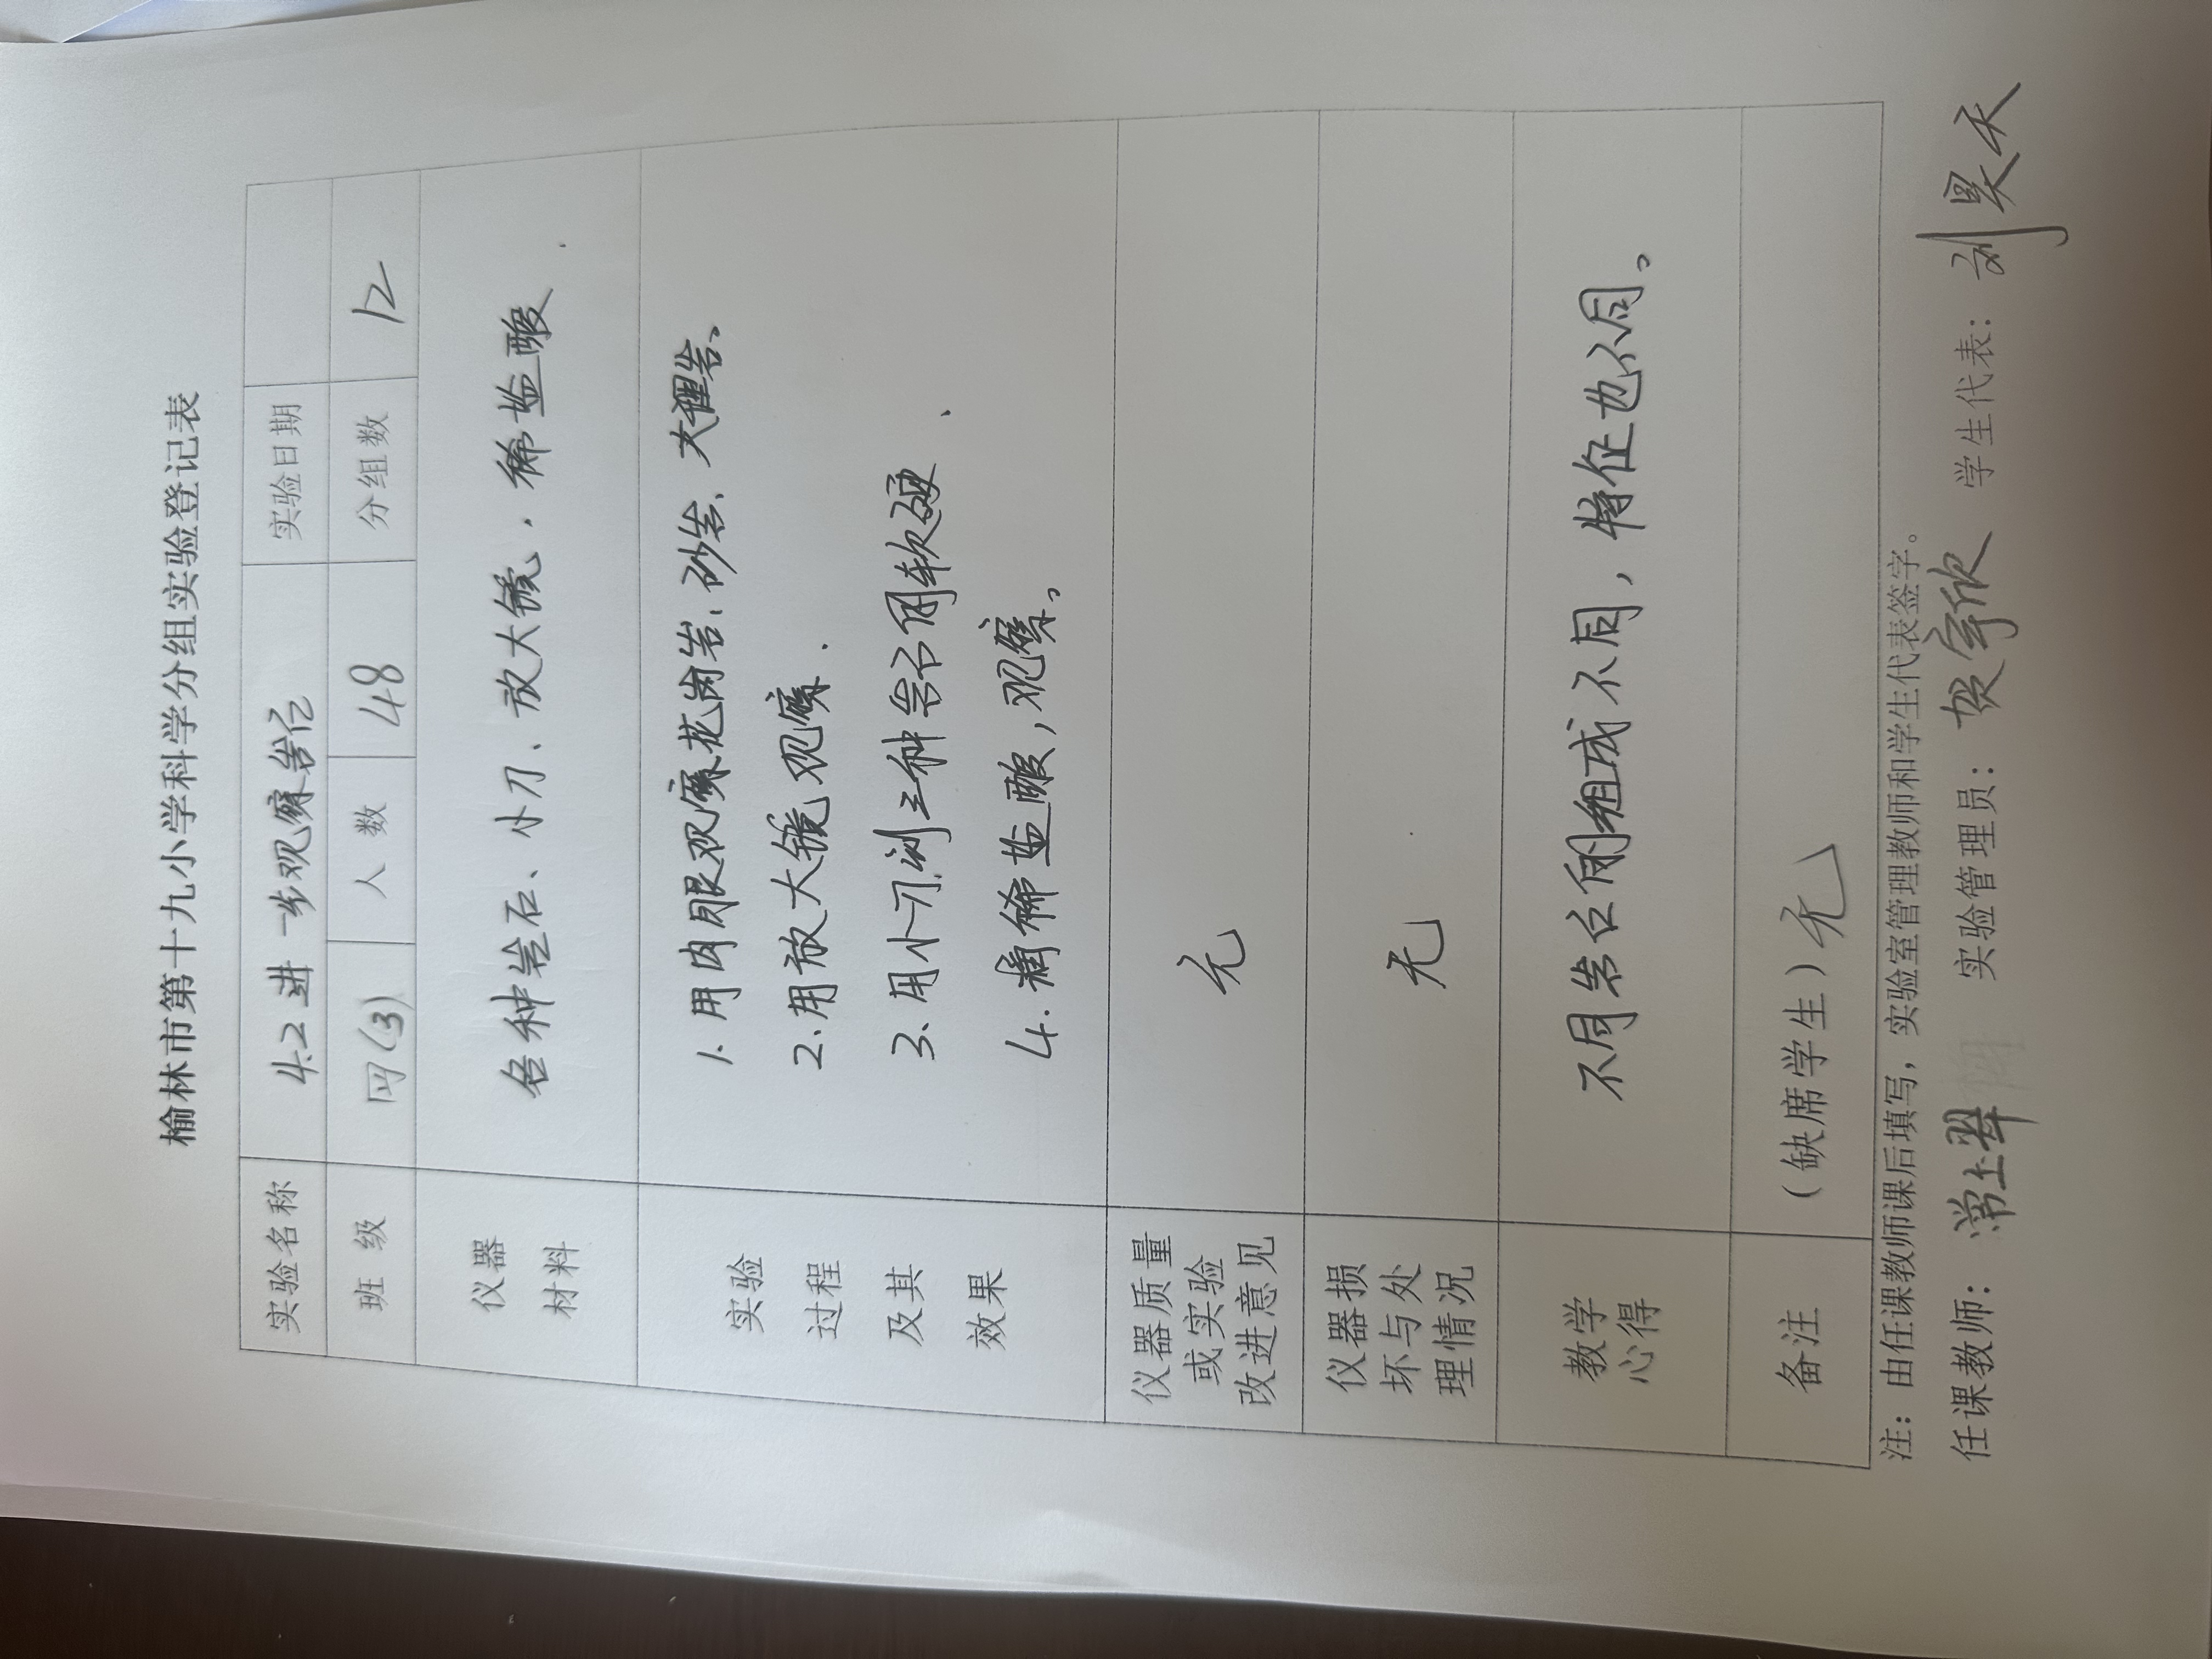 榆林市第十九小学科学分组实验登记表
实验名称 4.2 进一步观察岩石 实验日期
班级 四(3) 人数 48 分组数 12
仪器
材料
各种岩石、小刀、放大镜，稀盐酸
实验
过程
及其
效果
1. 用肉眼观察花岗岩、砂岩、大理岩。
2. 用放大镜观察.
3. 用小刀,测三种岩石的软硬、
4. 稀盐酸,观察。
仪器质量
或实验
改进意见
无
仪器损
坏与处
理情况
无
教学
心得
不同岩石的组成不同,特征也不同。
备注
(缺席学生) 无
注：由任课教师课后填写，实验室管理教师和学生代表签字。
任课教师: 实验管理员: 贺宇欣 学生代表: 刘昊天